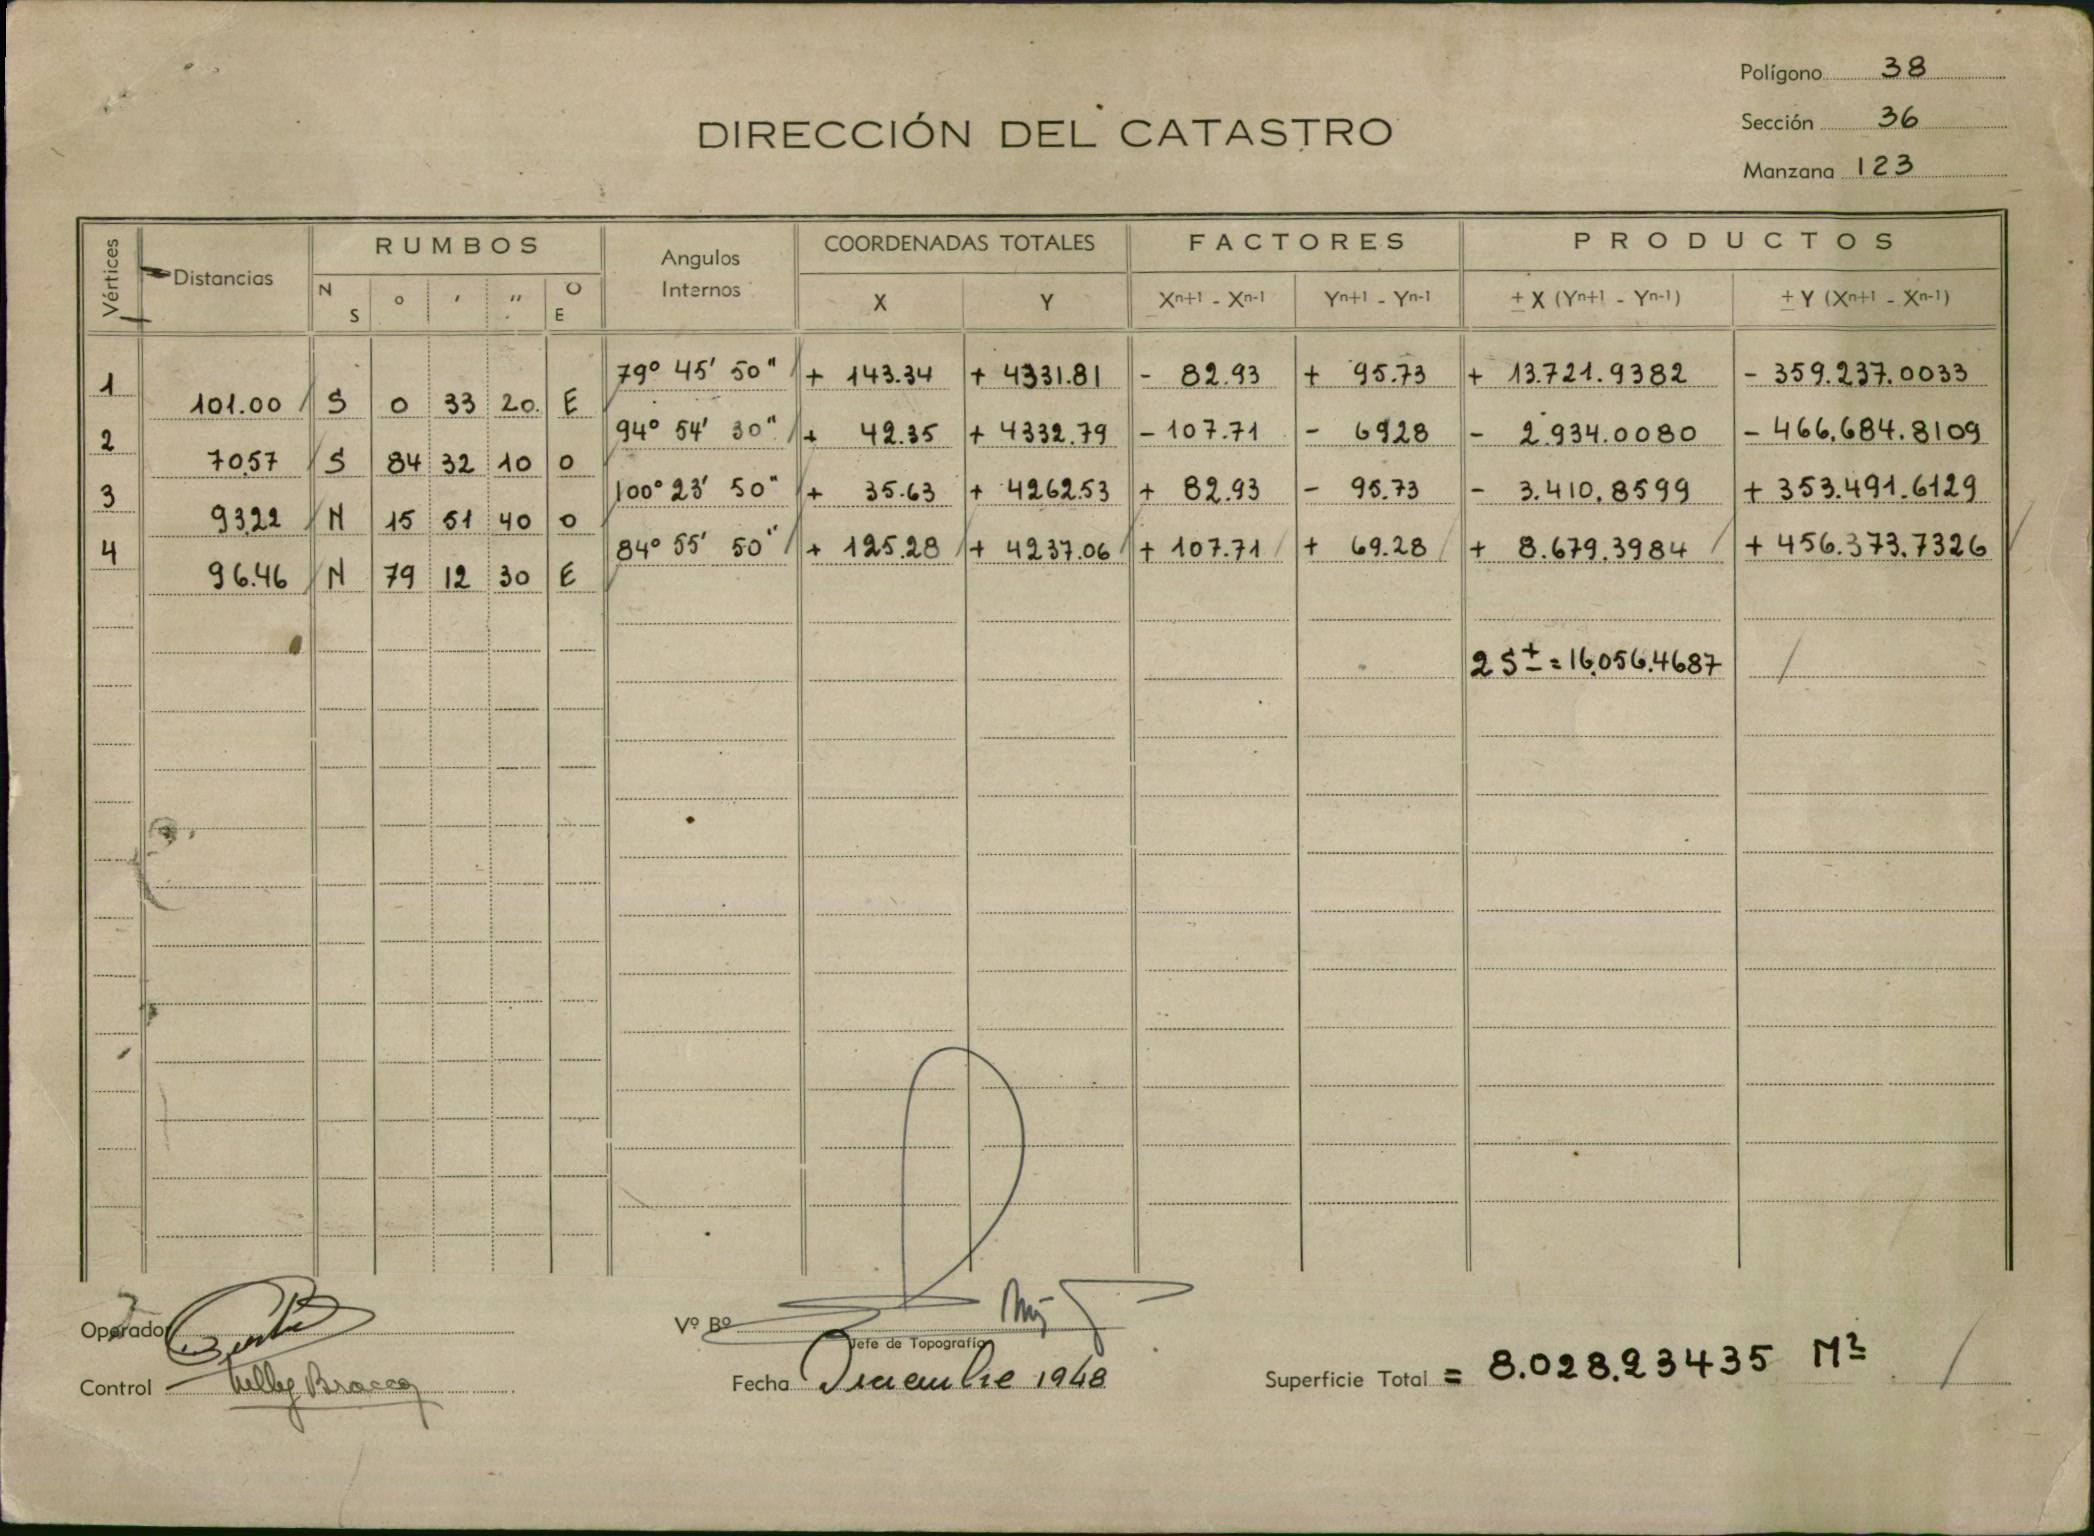 Polígono 38
DIRECCIÓN DEL CATASTRO
Sección 36
Manzana 123
Vértices Distancias RUMBOS Angulos Internos COORDENADAS TOTALES FACTORES PRODUCTOS
N S o ʹ ʺ O E X Y Xn+1 - Xn-1 Yn+1 - Yn-1 ± X (Yn+1 - Yn-1) ± Y (Xn+1 - Xn-1)
1 79° 45' 50" + 143.34 + 4331.81 - 82.93 + 95.73 + 13.721.9382 - 359.237.0033
101.00 S 0 33 20. E
2 94° 54' 30" + 42.35 + 4332.79 - 107.71 - 6928 - 2.934.0080 - 466.684.8109
70.57 S 84 32 10 O
3 100° 23' 50" + 35.63 + 4262.53 + 82.93 - 95.73 - 3.410.8599 + 353.491.6129
93.22 N 15 51 40 O
4 84° 55' 50" + 125.28 + 4237.06 + 107.71 + 69.28 + 8.679.3984 + 456.373.7326
96.46 N 79 12 30 E
2 S ± = 16.056.4687
Operador
Vº Bº
Jefe de Topografía
Control Nelly Bracco
Fecha Diciembre 1948
Superficie Total = 8.028.23435 M²